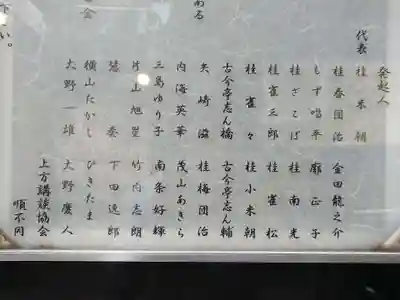 発起人
代表 桂米朝
桂春団治 金田龍之介
もず唱平 廓正子
桂ざこば 桂南光
桂雀三郎 桂雀松
桂雀々 桂小米朝
古今亭志ん橋 古今亭志ん輔
ある
矢崎滋 桂梅団治
内海英華 茂山あきら
三島ゆり子 南条好輝
片山旭星 竹内志朗
慧奏 下田逸郎
会
横山たかし ひきたま
大野一雄 大野慶人
上方講談協会
順不同
い。